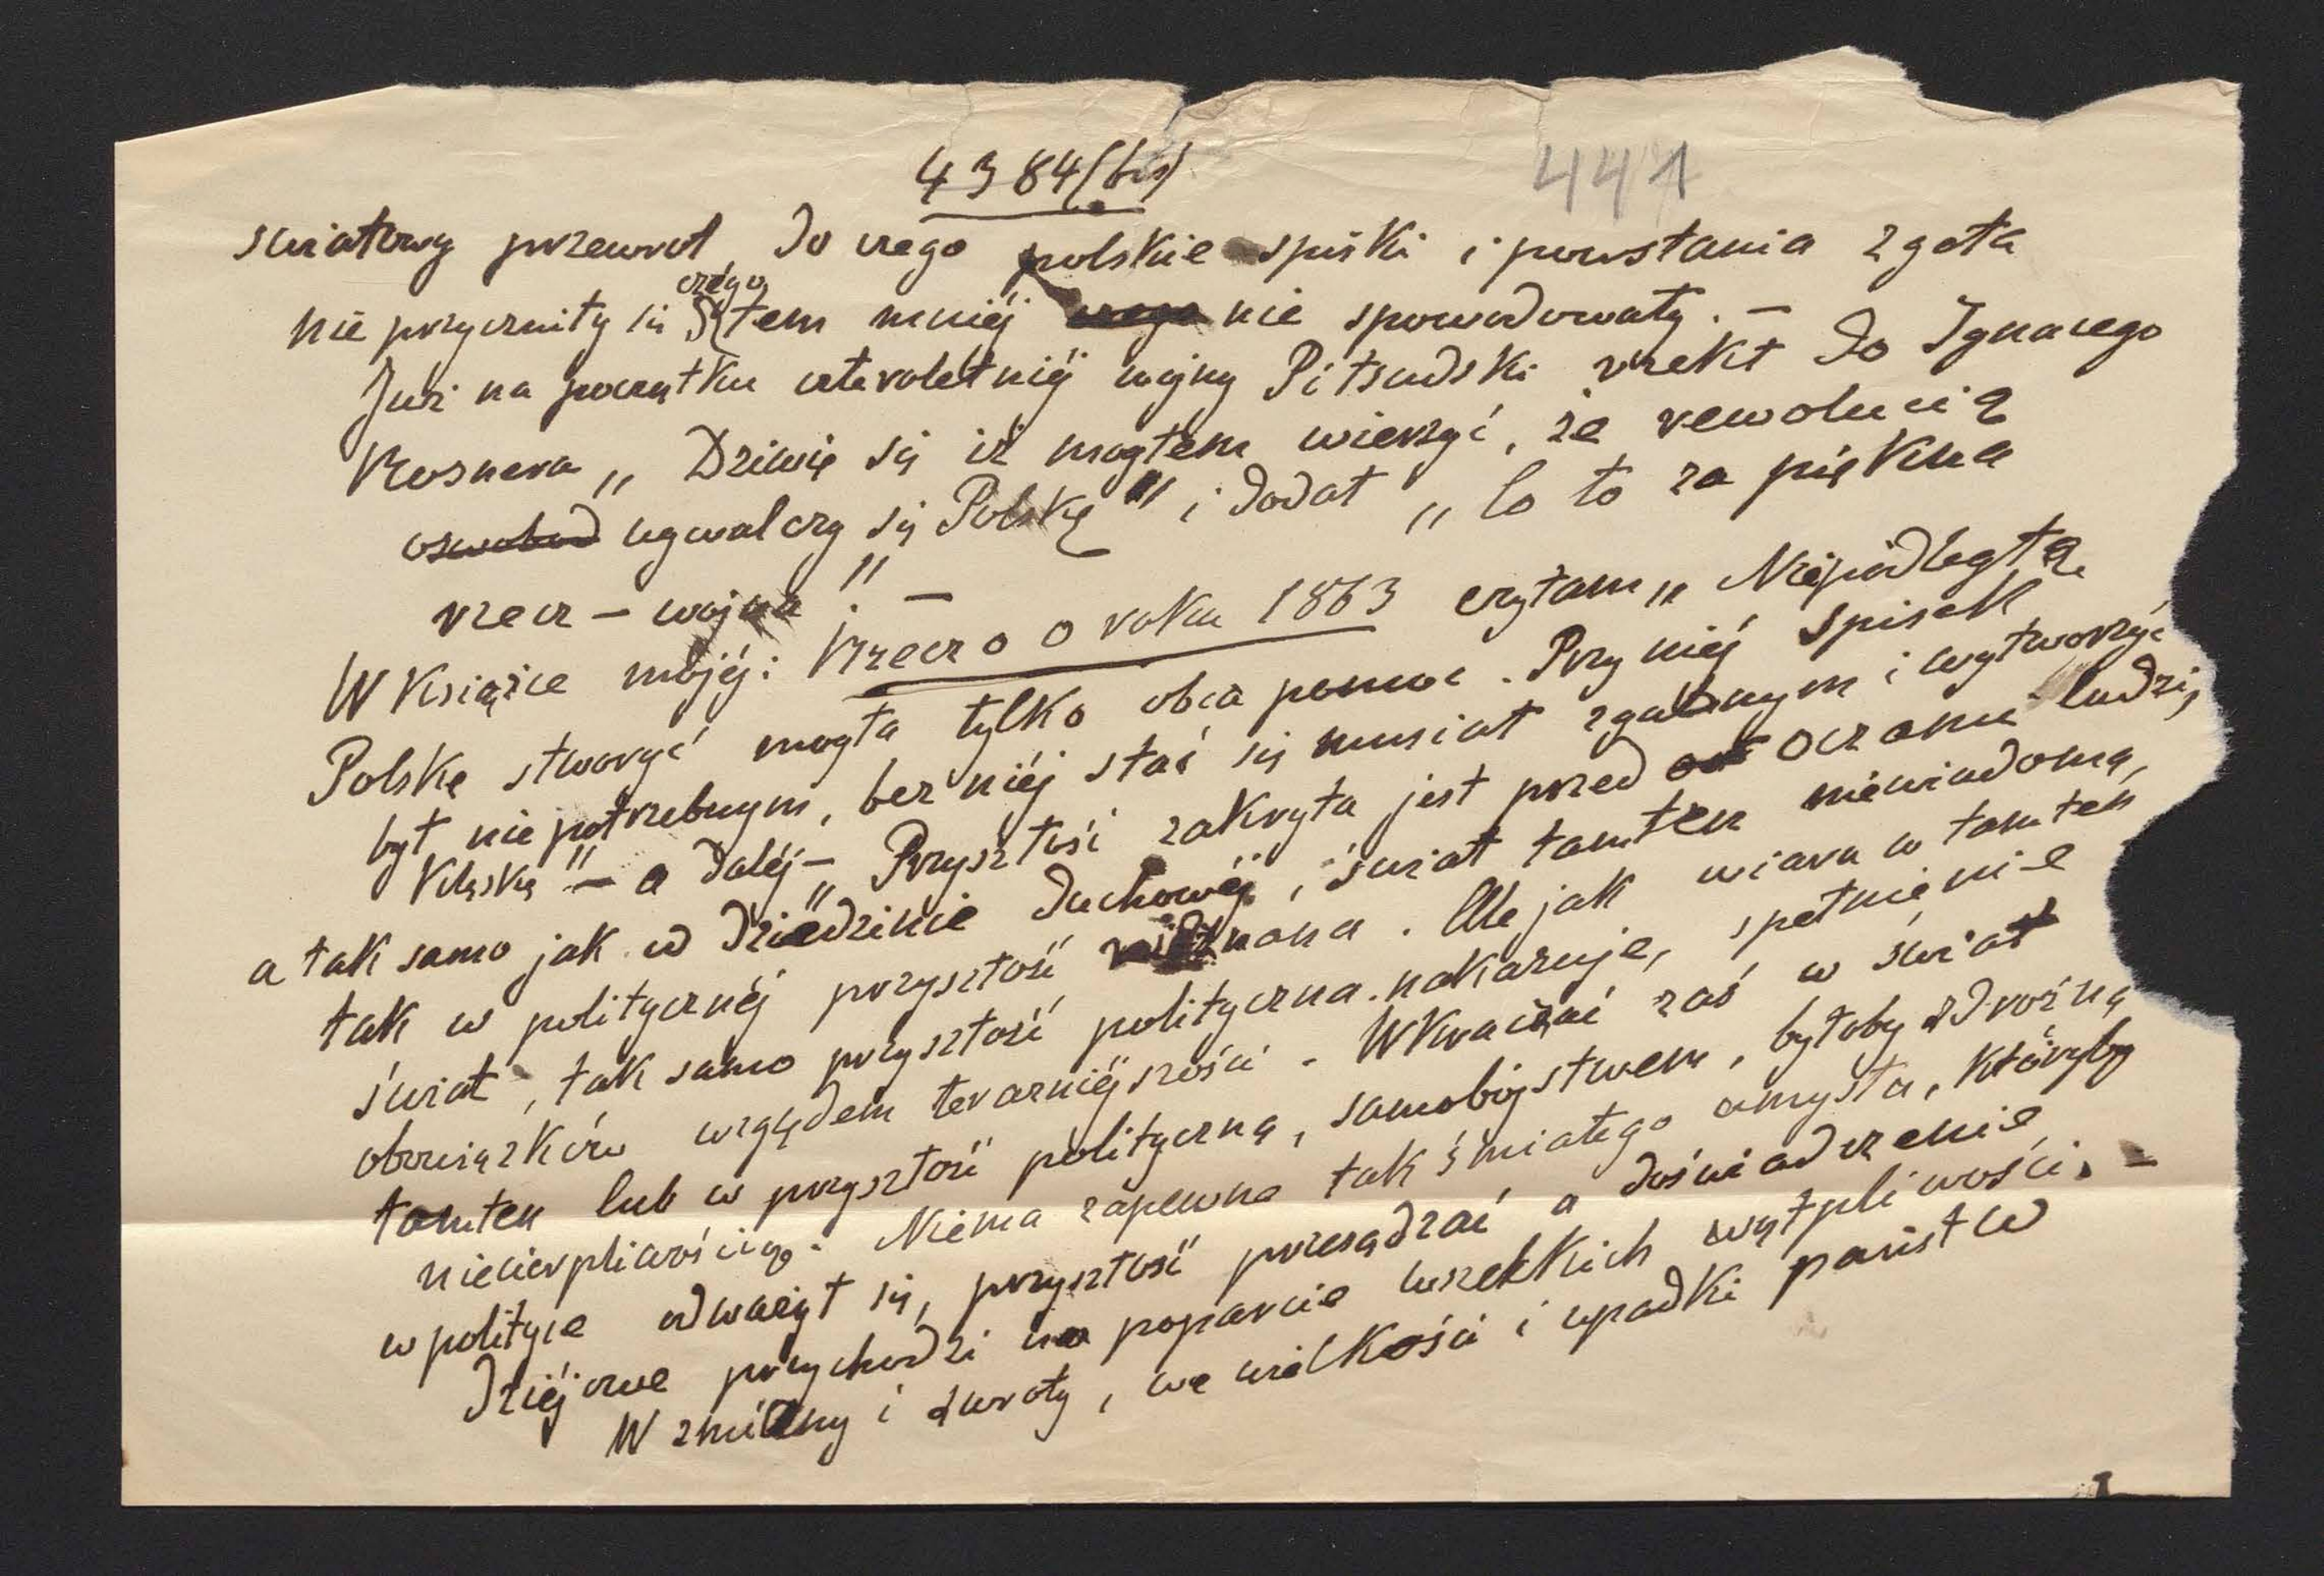 4384(bis)
441
światowy przewrot, do czego polskie spiski i powstania zgoła
nie przyczniły się czego tem mniéj czego nie spowodowały. –
Już na początku czteroletniéj wojny Piłsudski rzekł do Ignacego
Rosnera „Dziwię się iż mogłem wierzyć, że rewolucią
oswobod wywalczy się Polskę" i dodał „Co to za piękna
rzecz – wojna!" –
W Książce mojéj: Rzecz o roku 1863 czytam „Niepodległą
Polskę stworzyć mogła tylko obca pomoc. Przy niéj spisek
był niepotrzebnym, bez niéj stać się musiał zgubnym i wytworzyć
Klęskę" – a daléj – „Przyszłość zakryta jest przed oczami ludzi,
a tak samo jak w dziedzinie duchowéj, świat tamten niewiadomą,
tak w polityczńéj przyszłość nieznana. Ale jak wiara w tamten
świat, tak samo przyszłość polityczna nakazuje, spełnienie
obowiązków względem teraźniéjszości. Wkraczać zaś w świat
tamten lub w przyszłość polityczną, samobójstwem, byłoby zdrożną
niecierpliwością. Niema zapewne tak śmiałego umysłu, któryby
w polityce odważył się, przyszłość przesądzać a doświadczenie
dziejowe przychodzi na poparcie wszelkich wątpliwości. –
W zmiany i zwroty, we wielkości i upadki państw